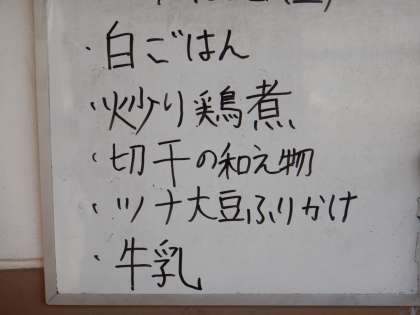 ・白ごはん
・炒り鶏煮
・切干の和え物
・ツナ大豆ふりかけ
・牛乳